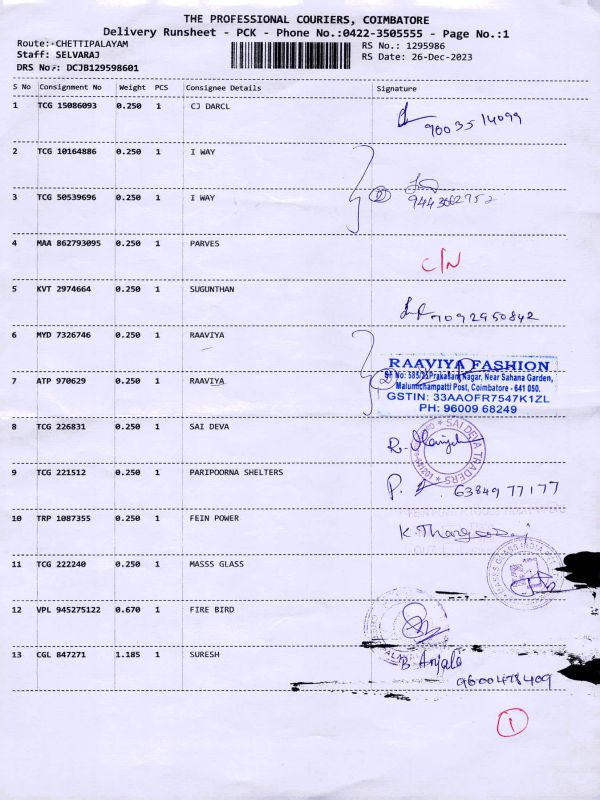 THE PROFESSIONAL COURIERS, COIMBATORE
Delivery Runsheet - PCK - Phone No.:0422-3505555 - Page No.:1
Route: CHETTIPALAYAM
RS No.: 1295986
Staff: SELVARAJ
RS Date: 26-Dec-2023
DRS No.: DCJB129598601
S No Consignment No Weight PCS Consignee Details Signature
1 TCG 15086093 0.250 1 CJ DARCL
9003514099
2 TCG 10164886 0.250 1 I WAY
3 TCG 50539696 0.250 1 I WAY
2
9443662752
4 MAA 862793095 0.250 1 PARVES
C/N
5 KVT 2974664 0.250 1 SUGUNTHAN
7092950842
6 MYD 7326746 0.250 1 RAAVIYA
RAAVIYA FASHION
SF No: 585/21Prakasam Nagar, Near Sahana Garden,
7 ATP 970629 0.250 1 RAAVIYA
2
Malumichampatti Post, Coimbatore - 641 050.
GSTIN: 33AAOFR7547K1ZL
PH: 96009 68249
8 TCG 226831 0.250 1 SAI DEVA
SAI DEVA TRADERS
9 TCG 221512 0.250 1 PARIPOORNA SHELTERS
P. 6384977177
10 TRP 1087355 0.250 1 FEIN POWER
11 TCG 222240 0.250 1 MASSS GLASS
GLASS INDIA
12 VPL 945275122 0.670 1 FIRE BIRD
13 CGL 847271 1.185 1 SURESH
B Anjali
9600478409
1